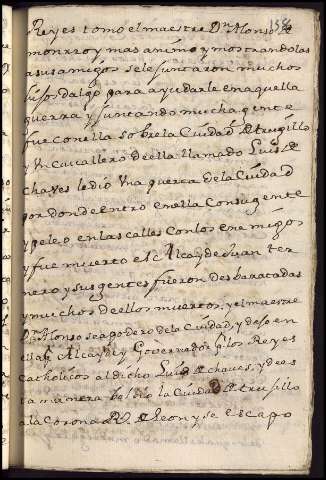 Reyes tomo el maestre Dn Alonso de
monrroy mas animo y mostrandolas
a sus amigos se le juntaron muchos
hijos dalgo para ayudarle en aquella
guerra y juntando mucha gente
fue con ella sobre la Ciudad de trugillo
y Un Cavallero de ella llamado Luis de
chaves le dio Una puerta de la Ciudad
por donde entro en ella Con su gente
y peleo en las calles Con los enemigos
y fue muerto el Alcayde Juan ter
nero y sus gentes fueron desbaratadas
y muchos de ellos muertos, y el maestre
Dn Alonso se apodero de la Ciudad, y dejo en
ella por Alcayde y Governador por los Reyes
Catholicos al dicho Luis de chaves, y de es
ta manera bolvio la Ciudad de trusillo
a la Corona de Leon y se escapo